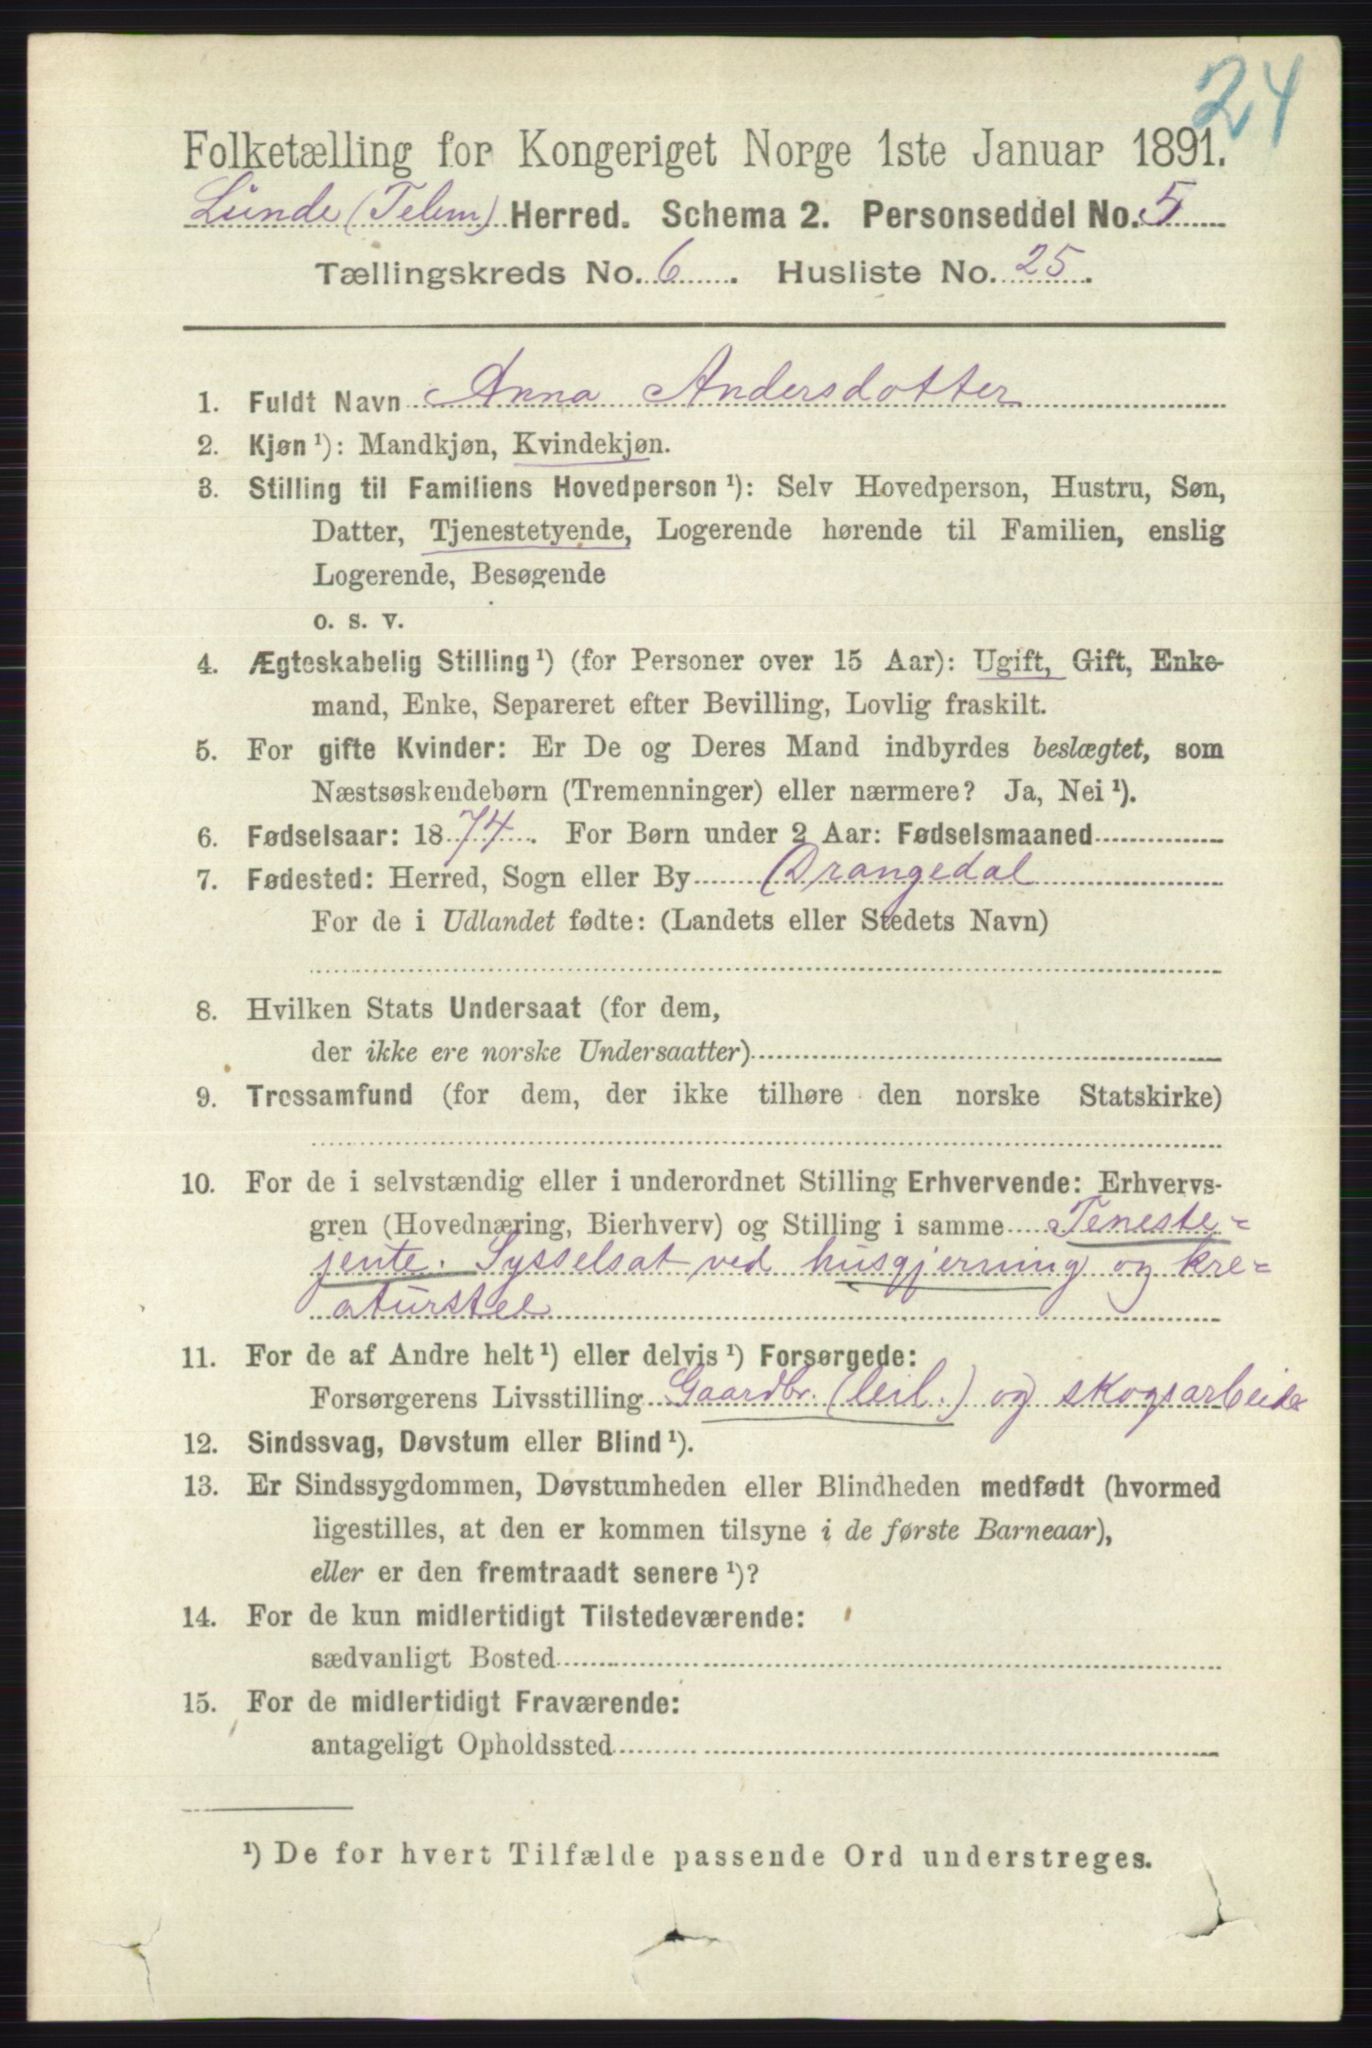 24
Folketælling for Kongeriget Norge 1ste Januar 1891.
Lunde (Telem) Herred. Schema 2. Personseddel No. 5
Tællingskreds No. 6. Husliste No. 25.
1. Fuldt Navn Anna Andersdotter
2. Kjøn ¹): Mandkjøn, Kvindekjøn.
3. Stilling til Familiens Hovedperson ¹): Selv Hovedperson, Hustru, Søn,
Datter, Tjenestetyende, Logerende hørende til Familien, enslig
Logerende, Besøgende
o. s. v.
4. Ægteskabelig Stilling ¹) (for Personer over 15 Aar): Ugift, Gift, Enke-
mand, Enke, Separeret efter Bevilling, Lovlig fraskilt.
5. For gifte Kvinder: Er De og Deres Mand indbyrdes beslægtet, som
Næstsøskendebørn (Tremenninger) eller nærmere? Ja, Nei ¹).
6. Fødselsaar: 1874. For Børn under 2 Aar: Fødselsmaaned
7. Fødested: Herred, Sogn eller By Drangedal
For de i Udlandet fødte: (Landets eller Stedets Navn)
8. Hvilken Stats Undersaat (for dem,
der ikke ere norske Undersaatter)
9. Trossamfund (for dem, der ikke tilhøre den norske Statskirke)
10. For de i selvstændig eller i underordnet Stilling Erhvervende: Erhvervs-
gren (Hovednæring, Bierhverv) og Stilling i samme Teneste-
jente. Sysselsat ved husgjerning og kre-
aturstel
11. For de af Andre helt ¹) eller delvis ¹) Forsørgede:
Forsørgerens Livsstilling Gaardbr. (leil.) og skogsarbeider
12. Sindssvag, Døvstum eller Blind ¹).
13. Er Sindssygdommen, Døvstumheden eller Blindheden medfødt (hvormed
ligestilles, at den er kommen tilsyne i de første Barneaar),
eller er den fremtraadt senere ¹)?
14. For de kun midlertidigt Tilstedeværende:
sædvanligt Bosted
15. For de midlertidigt Fraværende:
antageligt Opholdssted
¹) De for hvert Tilfælde passende Ord understreges.